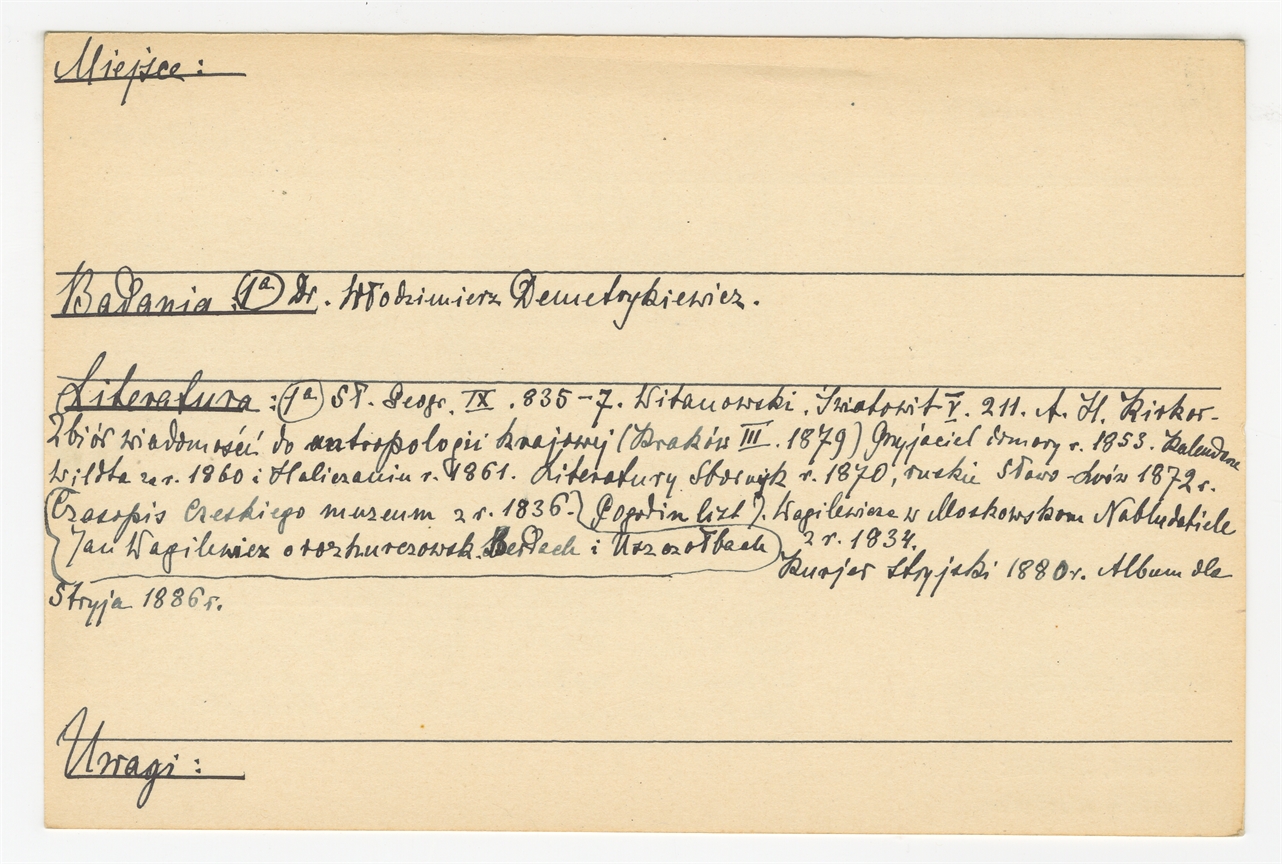 Miejsce :
Badania : 1ª) Dr. Włodzimierz Demetrykiewicz.
Literatura : (1ª) Sł. Geogr. IX . 835-7. Witanowski. Światowit V. 211. A. H. Kirkor-
Zbiór wiadomości do antropologii krajowej (Kraków III . 1879) Przyjaciel domowy r. 1853. Kalendarz
Wildta za r. 1860 i Haliczanin r. 1861. Literatury Sbornyk r. 1870, ruskie Słowo Lwów 1872 r.
Czasopis Czeskiego muzeum z r. 1836. (Pogodin list). Wagilewicza w Moskowskom Nabludatiele
z r. 1834.
Jan Wagilewicz o rozhurczowsk. Berdach i Uszczołbach
Kurjer Stryjski 1880 r. Album dla
Stryja 1886 r.
Uwagi :